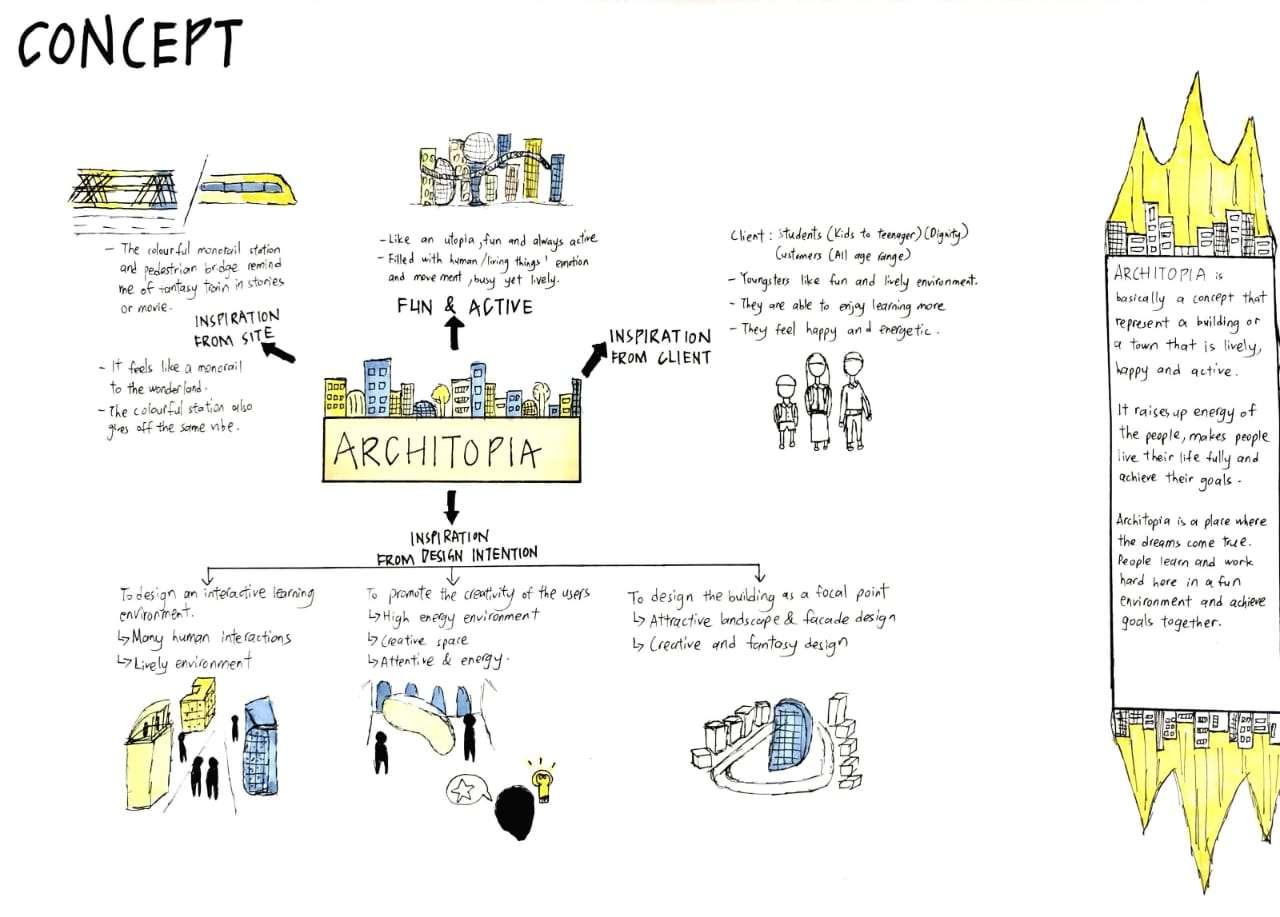 CONCEPT
- The colourful monorail station
and pedestrian bridge remind
me of fantasy train in stories
or movie.
INSPIRATION
FROM SITE
- It feels like a monorail
to the wonderland.
- The colourful station also
gives off the same vibe.
- Like an utopia, fun and always active
- Filled with human/living things' emotion
and movement, busy yet lively.
FUN & ACTIVE
INSPIRATION
FROM CLIENT
Client : Students (Kids to teenager) (Dignity)
Customers (All age range)
- Youngsters like fun and lively environment.
- They are able to enjoy learning more
- They feel happy and energetic.
ARCHITOPIA
INSPIRATION
FROM DESIGN INTENTION
To design an interactive learning
environment.
↳ Many human interactions
↳ Lively environment
To promote the creativity of the users
↳ High energy environment
↳ Creative space
↳ Attentive & energy.
To design the building as a focal point
↳ Attractive landscape & facade design
↳ Creative and fantasy design
ARCHITOPIA is
basically a concept that
represent a building or
a town that is lively,
happy and active.
It raises up energy of
the people, makes people
live their life fully and
achieve their goals.
Architopia is a place where
the dreams come true.
People learn and work
hard here in a fun
environment and achieve
goals together.